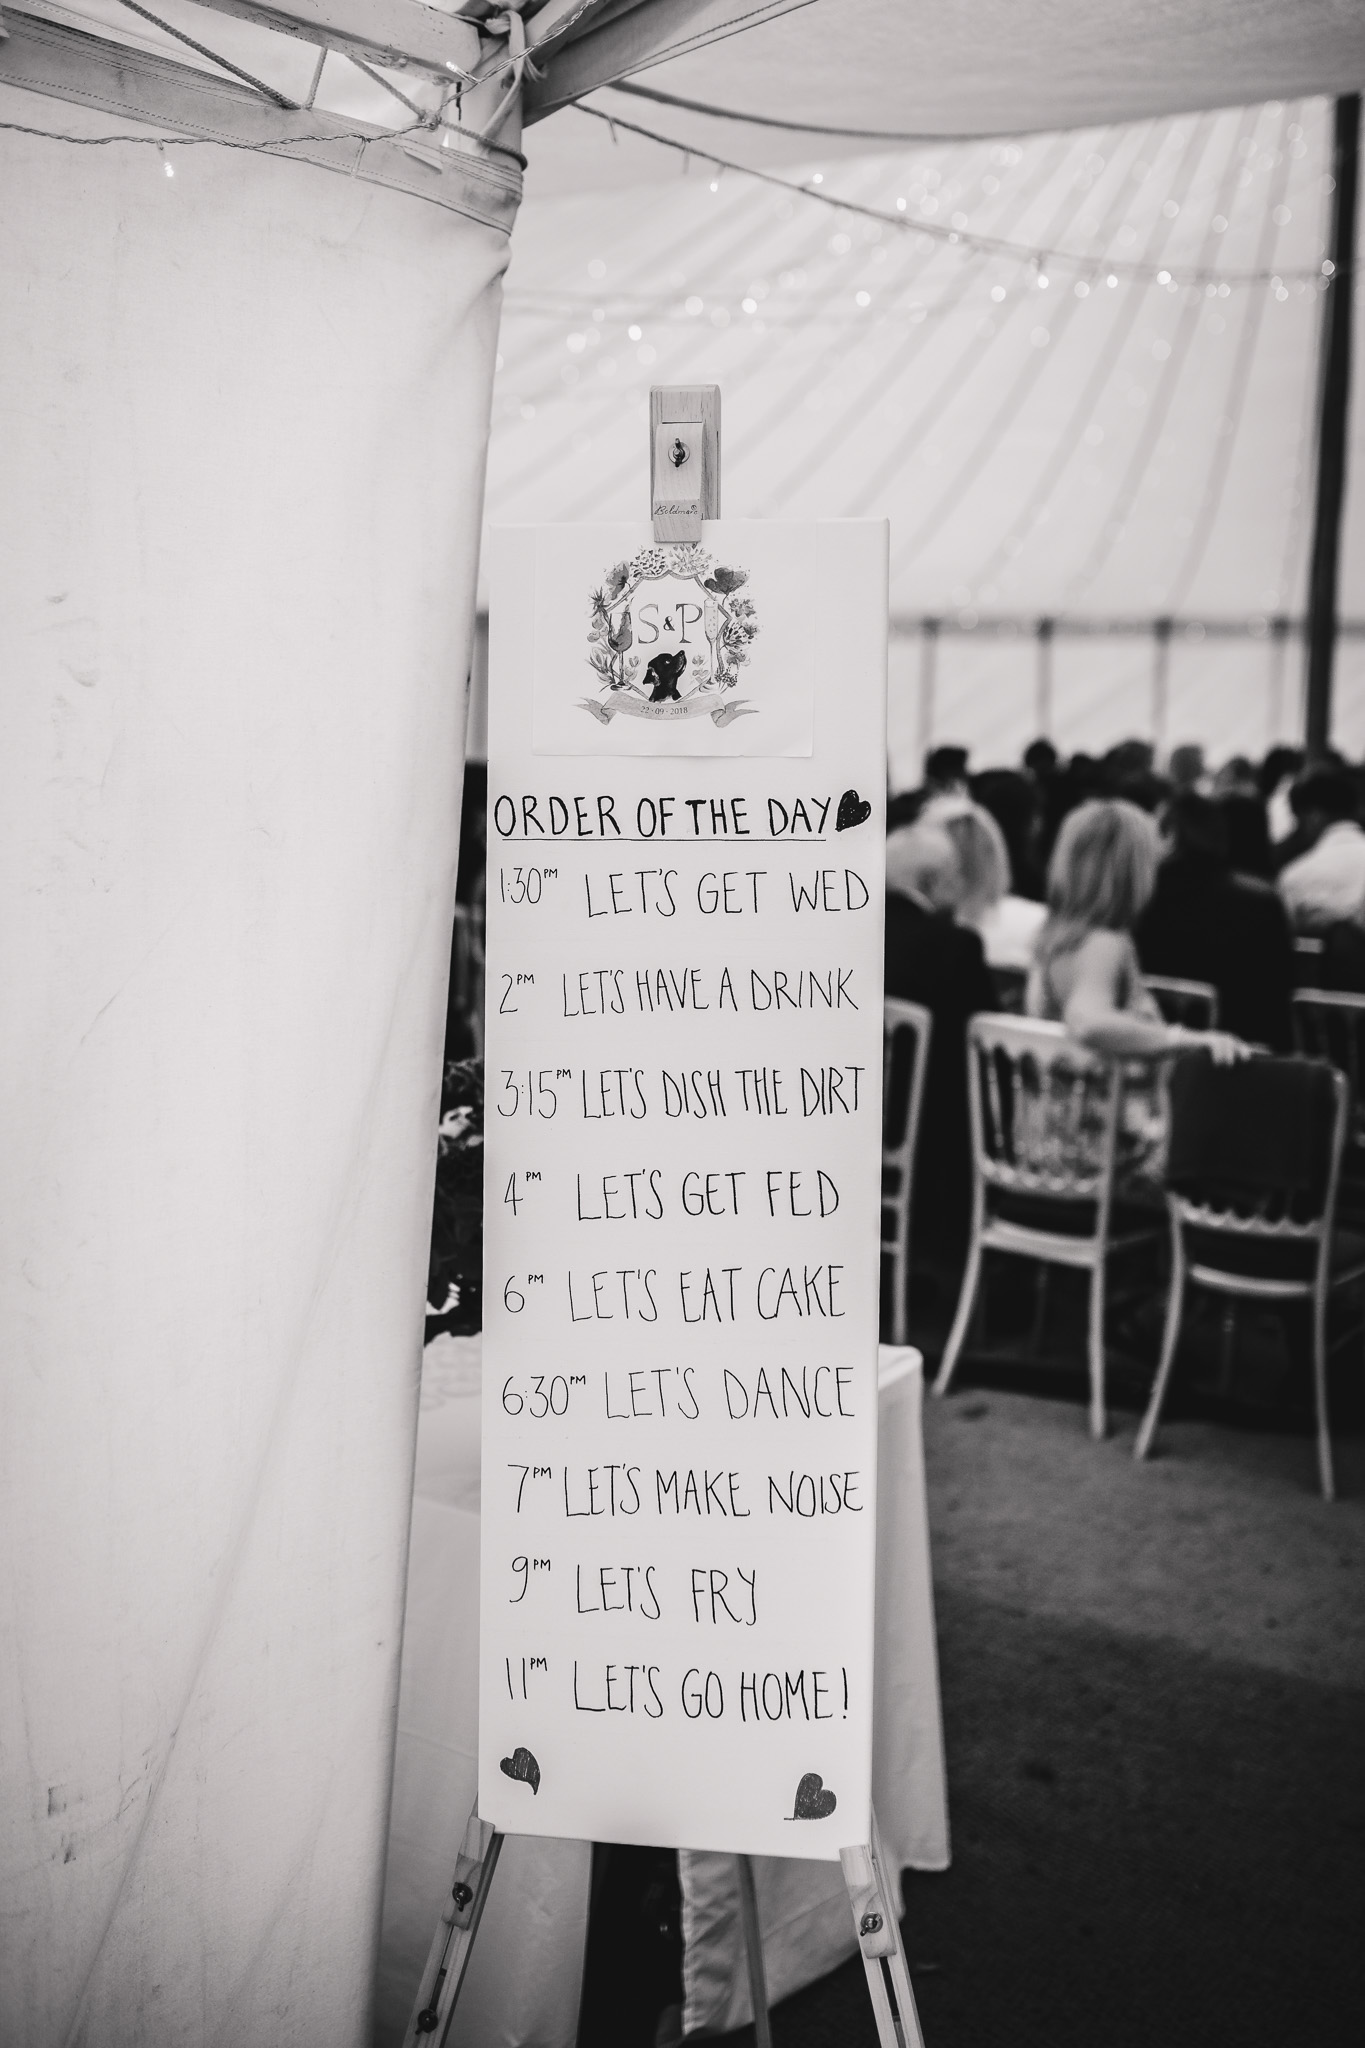 Boldmere
S & P
22 - 09 - 2018
ORDER OF THE DAY
1:30PM LET'S GET WED
2PM LET'S HAVE A DRINK
3:15PM LET'S DISH THE DIRT
4PM LET'S GET FED
6PM LET'S EAT CAKE
6:30PM LET'S DANCE
7PM LET'S MAKE NOISE
9PM LET'S FRY
11PM LET'S GO HOME!